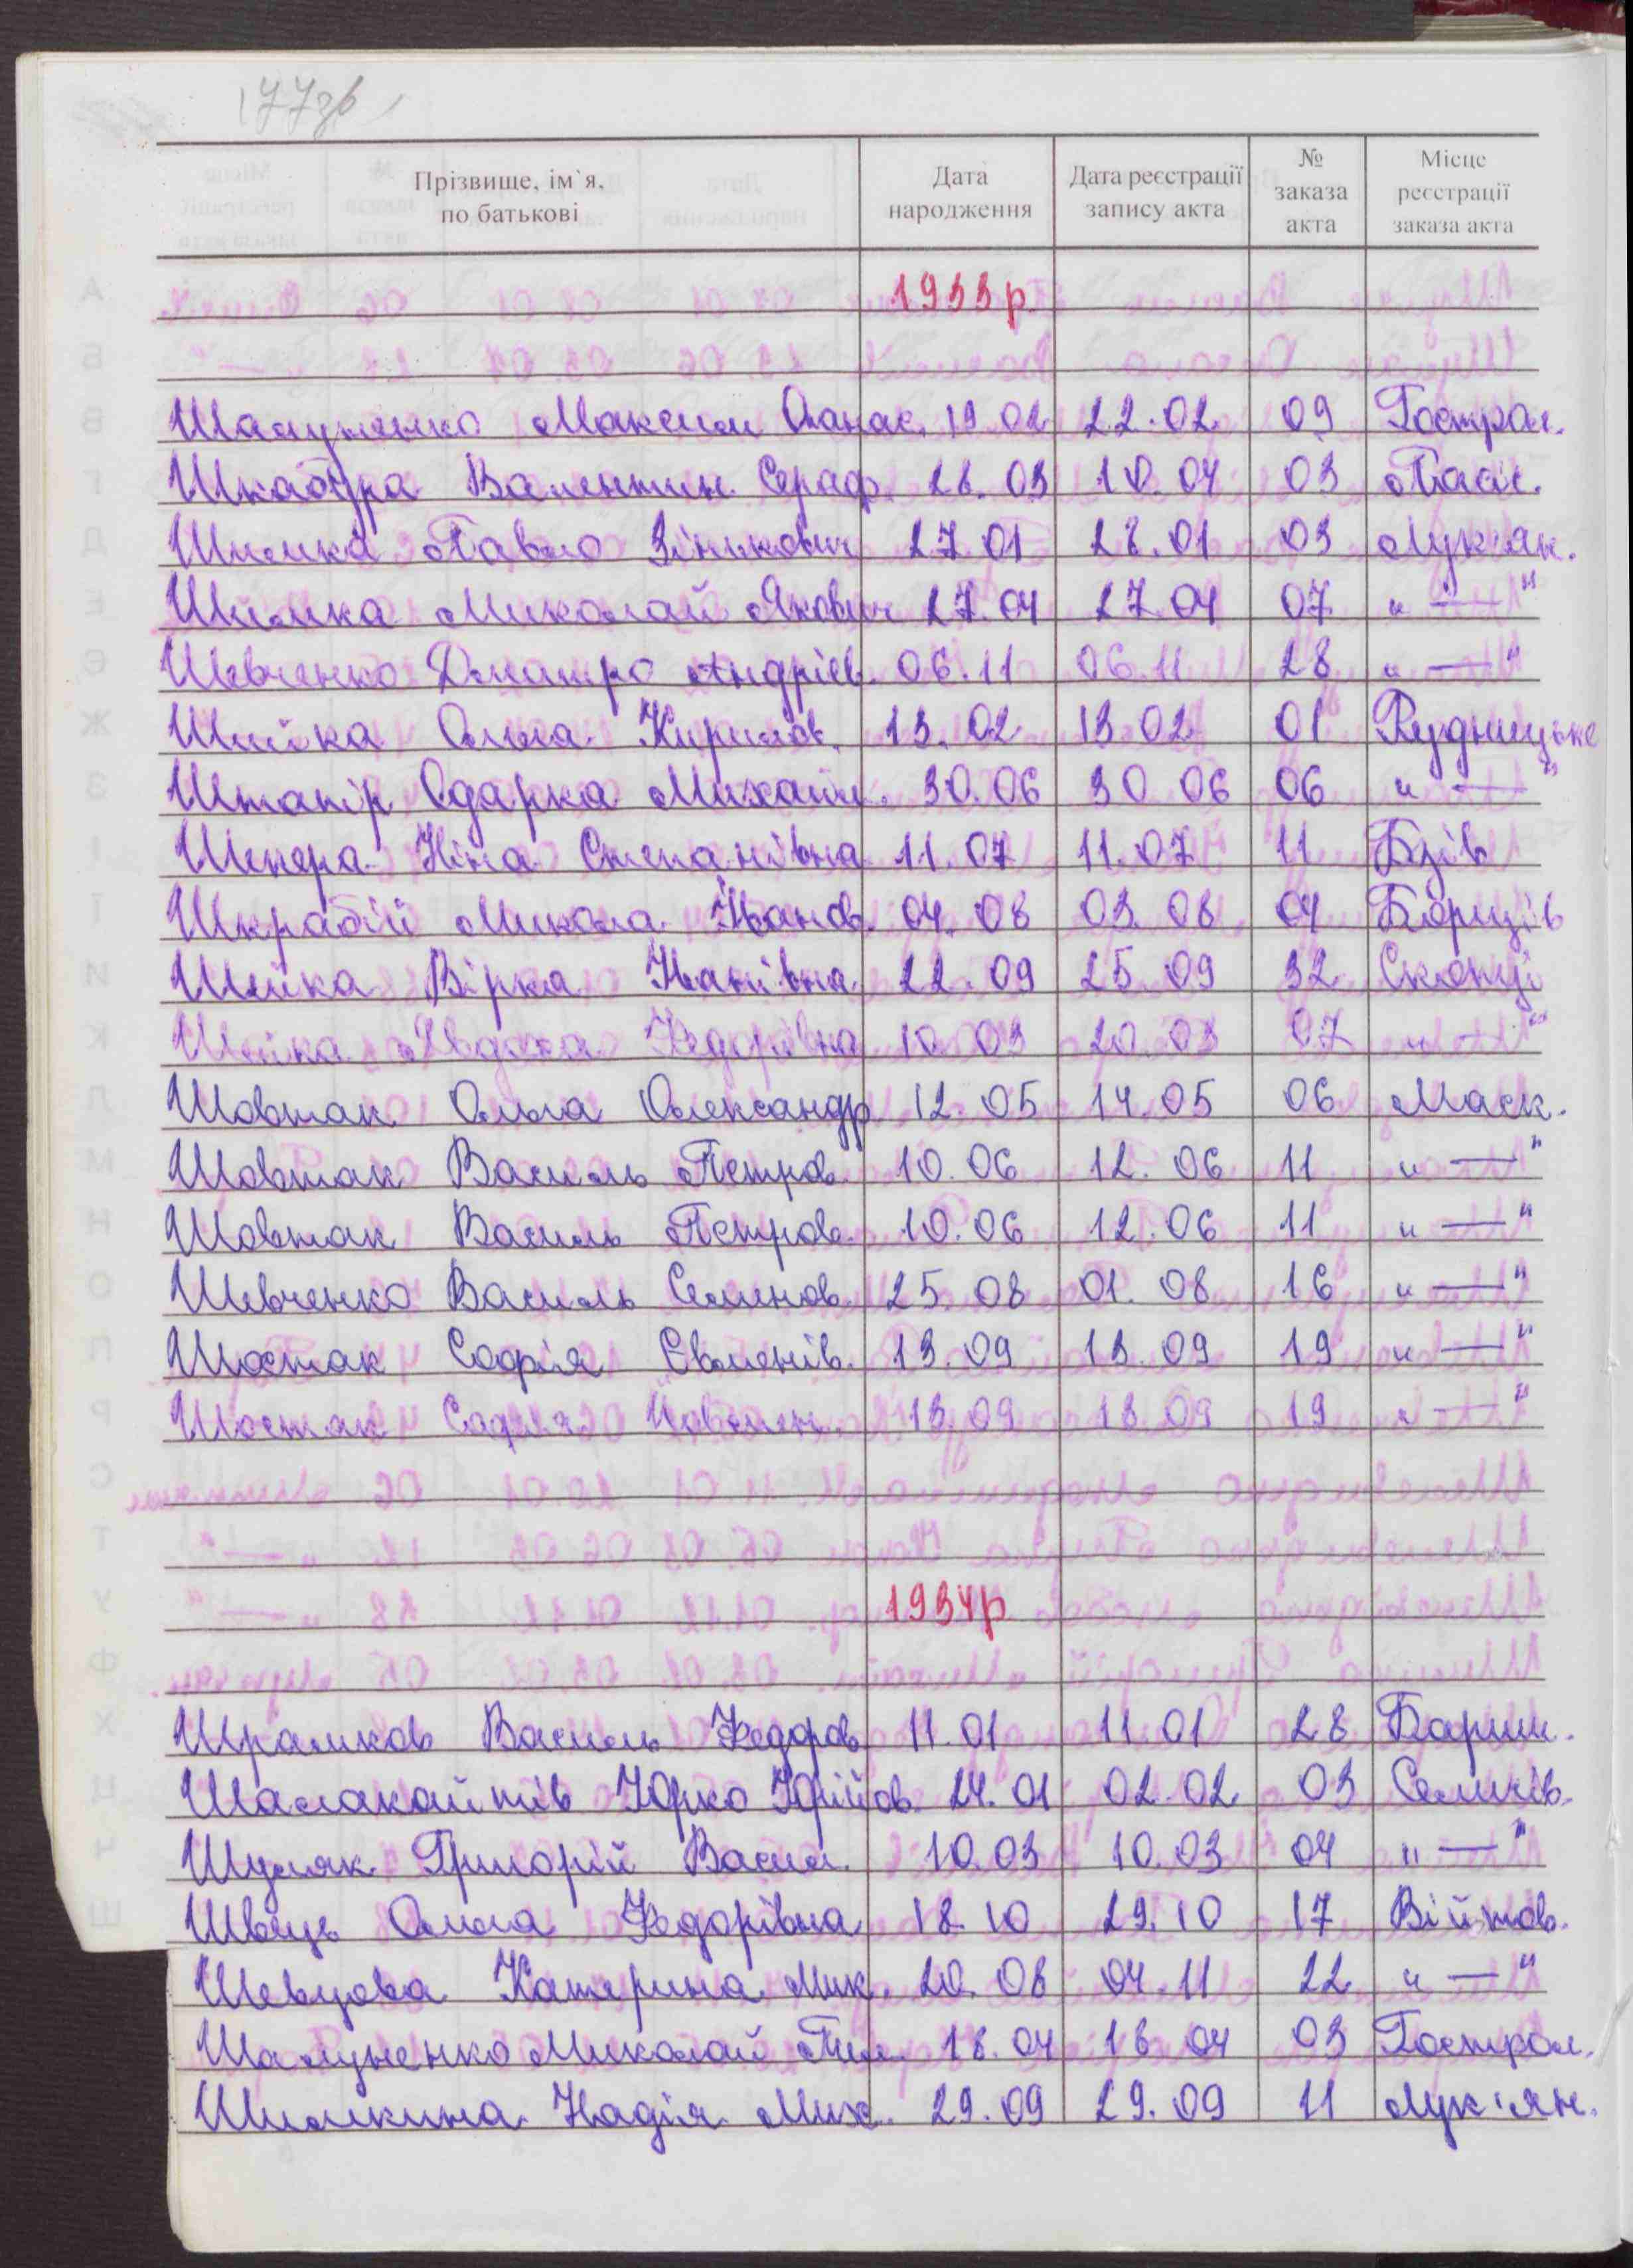 177зв
Прізвище, ім`я, по батькові Дата народження Дата реєстрації запису акта № заказа акта Місце реєстрації заказа акта
1933р.
Шамуненко Максим Опанас. 19.02 22.02. 09 Гострол.
Шкабура Валентин Сераф. 28.03 10.04 03 Пасіє.
Шимка Павло Зінькович 27.01 28.01 03 Лук'ян.
Шимка Миколай Якович 27.04 27.04 07 " — "
Шевченко Дмитро Андріев. 06.11 06.11 28 " — "
Шийка Ольга Кирилов. 13.02 13.02 01 Рудницьке
Штапір Одарка Михайл. 30.06 30.06 06 " — "
Шепера Ніна Степанівна 11.07 11.07 11 Бзів
Шкрабій Микола Іванов. 04.08 03.08 04 Борщів
Шийка Вірка Іванівна 22.09 25.09 32 Скопці
Шийка Явдоха Федорівна 10.03 20.03 07 " — "
Шовтак Ольга Олександр 12.05 14.05 06 Маск.
Шовтак Василь Петров. 10.06 12.06 11 " — "
Шовтак Василь Петров. 10.06 12.06 11 " — "
Шевченко Василь Семенов. 25.08 01.08 16 " — "
Шостак Софія Євменів. 13.09 13.09 19 " — "
Шостак Софія 13.09 13.09 19 " — "
1934р
Шрамков Василь Федоров 11.01 11.01 28 Бариш.
Юрко Юрійов. 24.01 02.02 03 Селичів.
Шуляк Григорій Васил. 10.03 10.03 04 " — "
Швець Ольга Федорівна 18.10 29.10 17 Війтов.
Шевцова Катерина Мик. 20.08 04.11 22 " — "
Шамуненко Миколай Пил. 18.04 18.04 03 Гострол.
Шимкина Надія Мих. 29.09 29.09 11 Лук'ян.